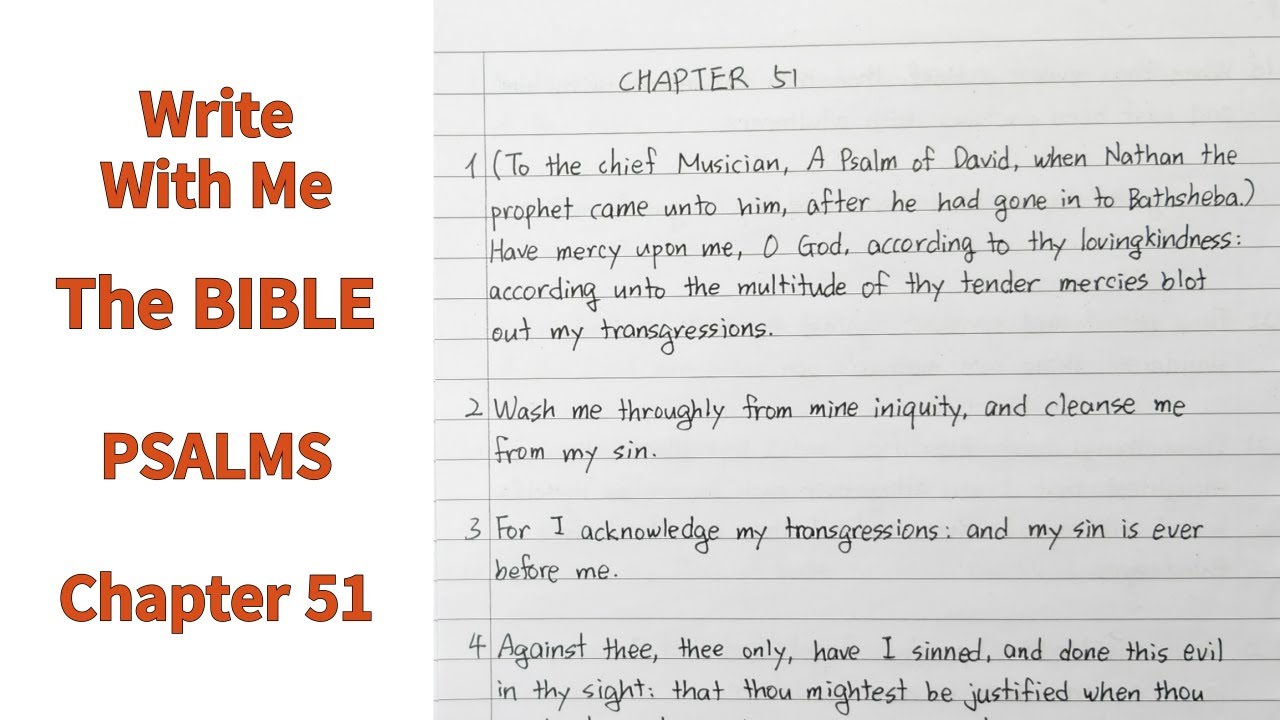 Write
With Me
The BIBLE
PSALMS
Chapter 51
CHAPTER 51
1 (To the chief Musician, A Psalm of David, when Nathan the
prophet came unto him, after he had gone in to Bathsheba.)
Have mercy upon me, O God, according to thy lovingkindness:
according unto the multitude of thy tender mercies blot
out my transgressions.
2 Wash me throughly from mine iniquity, and cleanse me
from my sin.
3 For I acknowledge my transgressions: and my sin is ever
before me.
4 Against thee, thee only, have I sinned, and done this evil
in thy sight: that thou mightest be justified when thou